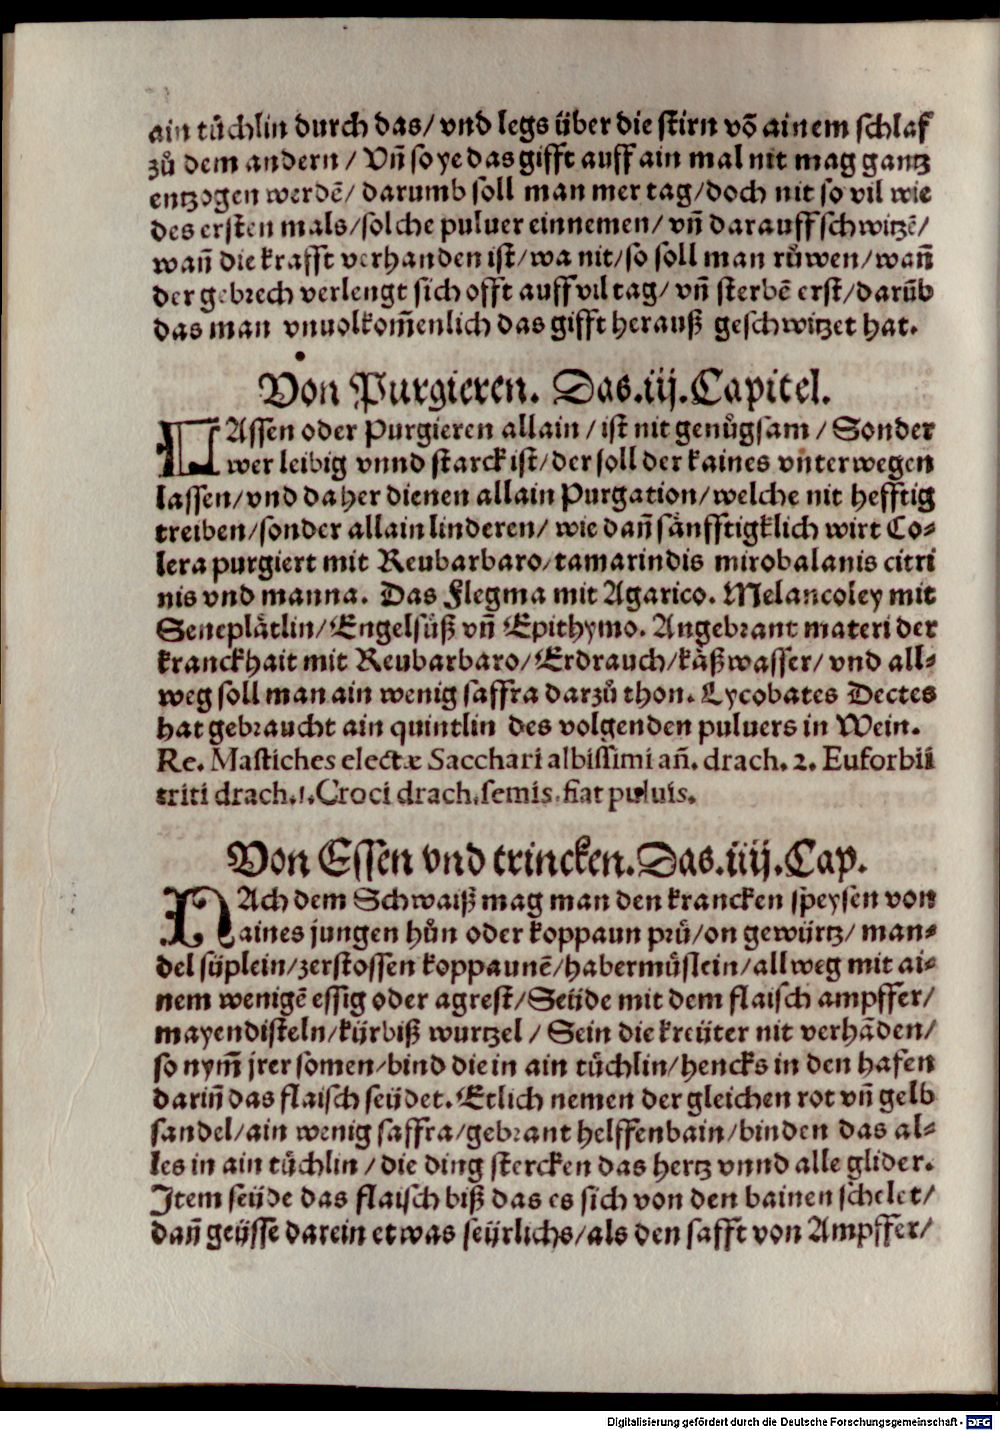 ain tüchlin durch das/ vnd legs über die stirn võ ainem schlaf
zů dem andern / Vñ so ye das gifft auff ain mal nit mag gantz
entzogen werdẽ/ darumb soll man mer tag/doch nit so vil wie
des ersten mals/solche puluer einnemen/ vñ darauff schwitzẽ/
wañ die krafft verhanden ist/wa nit/so soll man růwen/wañ
der gebrech verlengt sich offt auff vil tag/ vñ sterbẽ erst/darũb
das man vnuolkom̃enlich das gifft herauß geschwitzet hat.
Von Purgieren. Das .iij. Capitel.
LAssen oder Purgieren allain / ist nit genůgsam / Sonder
wer leibig vnnd starck ist/der soll der kaines vnterwegen
lassen/vnd da her dienen allain Purgation/welche nit hefftig
treiben/sonder allain linderen/ wie dañ sänfftigklich wirt Co⸗
lera purgiert mit Reubarbaro/tamarindis mirobalanis citri
nis vnd manna. Das Flegma mit Agarico. Melancoley mit
Seneplätlin/Engelsüß vñ Epithymo. Angebrant materi der
kranckhait mit Reubarbaro/Erdrauch/käßwasser/ vnd all⸗
weg soll man ain wenig saffra darzů thon. Lycobates Dectes
hat gebraucht ain quintlin des volgenden puluers in Wein.
Re. Mastiches electæ Sacchari albissimi añ. drach. 2. Euforbii
triti drach.1. Croci drach.semis.fiat puluis.
Von Essen vnd trincken. Das .iiij. Cap.
NAch dem Schwaiß mag man den krancken speysen von
aines jungen hůn oder koppaun prü/on gewürtz/ man⸗
del süplein/zerstossen koppaunẽ/habermüslein/allweg mit ai⸗
nem wenigẽ essig oder agrest/Seüde mit dem flaisch ampffer/
mayendisteln/kürbiß wurtzel / Sein die kreüter nit verhãden/
so nym̃ jrer somen/bind die in ain tüchlin/hencks in den hafen
dariñ das flaisch seüdet. Etlich nemen der gleichen rot vñ gelb
sandel/ain wenig saffra/gebrant helffenbain/binden das al⸗
les in ain tüchlin / die ding stercken das hertz vnnd alle glider.
Item seüde das flaisch biß das es sich von den bainen schelet/
dañ geüsse darein etwas seürlichs/als den safft von Ampffer/
Digitalisierung gefördert durch die Deutsche Forschungsgemeinschaft - DFG